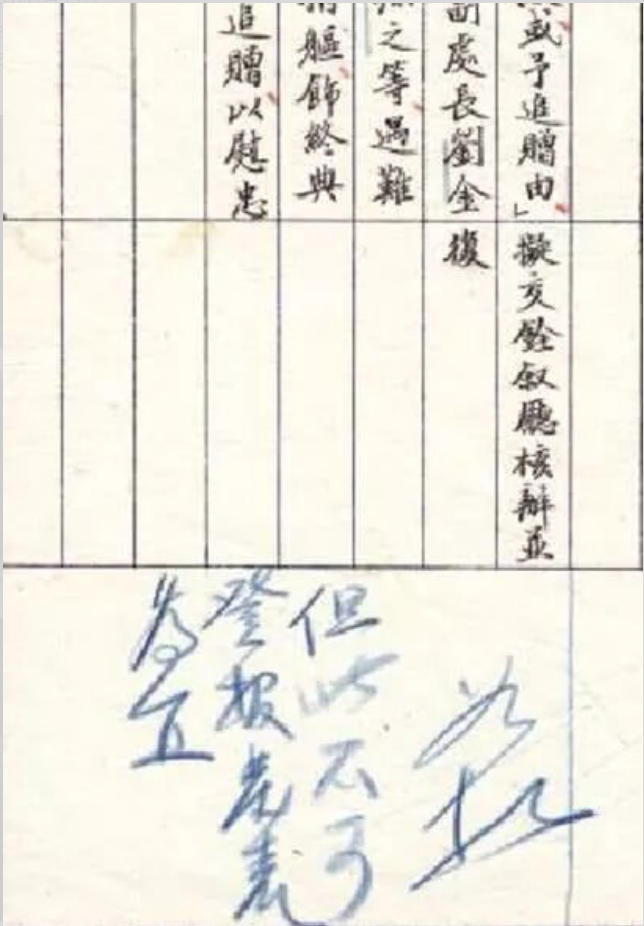 予追贈由」
擬交銓叙廳核辦並
副處長劉金
復
之等遇難
軀飾終典
追贈以慰忠
但此不可
登報発表
為宜